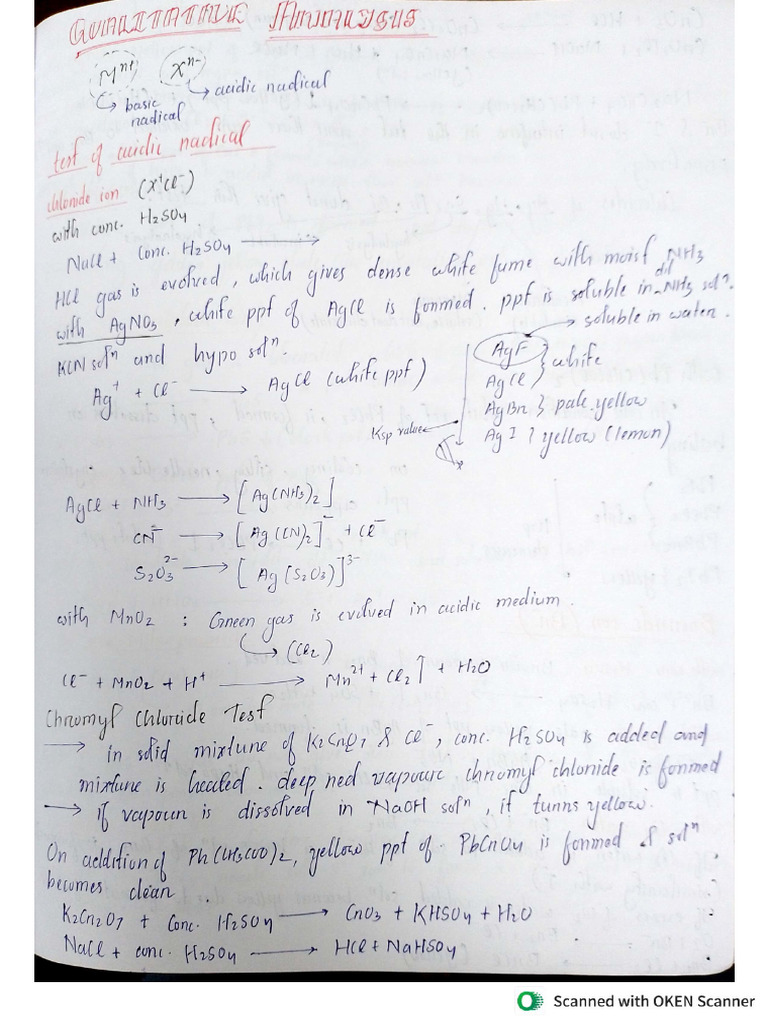 QUALITATIVE ANALYSIS
Mⁿ⁺ Xⁿ⁻
→ basic radical
→ acidic radical
test of acidic radical
chloride ion (X⁺Cl⁻)
with conc. H2SO4
NaCl + conc. H2SO4 →
HCl gas is evolved, which gives dense white fume with moist NH3
with AgNO3, white ppt of AgCl is formed. ppt is soluble in dil NH3 solⁿ.
KCN solⁿ and hypo solⁿ.
Ag⁺ + Cl⁻ → AgCl (white ppt)
AgF → soluble in water.
AgCl } white
AgBr } pale yellow
AgI } yellow (lemon)
Ksp value ←
AgCl + NH3 → [Ag(NH3)2]
CN⁻ → [Ag(CN)2]⁻ + Cl⁻
S2O3²⁻ → [Ag(S2O3)]³⁻
with MnO2 : Green gas is evolved in acidic medium.
→ (Cl2)
Cl⁻ + MnO2 + H⁺ → Mn²⁺ + Cl2↑ + H2O
Chromyl Chloride Test
→ in solid mixture of K2CrO7 & Cl⁻, conc. H2SO4 is added and
mixture is heated. deep red vapour, chromyl chloride is formed
→ if vapour is dissolved in NaOH solⁿ, it turns yellow.
On addition of Ph(CH3COO)2, yellow ppt of PbCrO4 is formed & solⁿ
becomes clear.
K2Cr2O7 + Conc. H2SO4 → CrO3 + KHSO4 + H2O
NaCl + conc. H2SO4 → HCl + NaHSO4
Scanned with OKEN Scanner